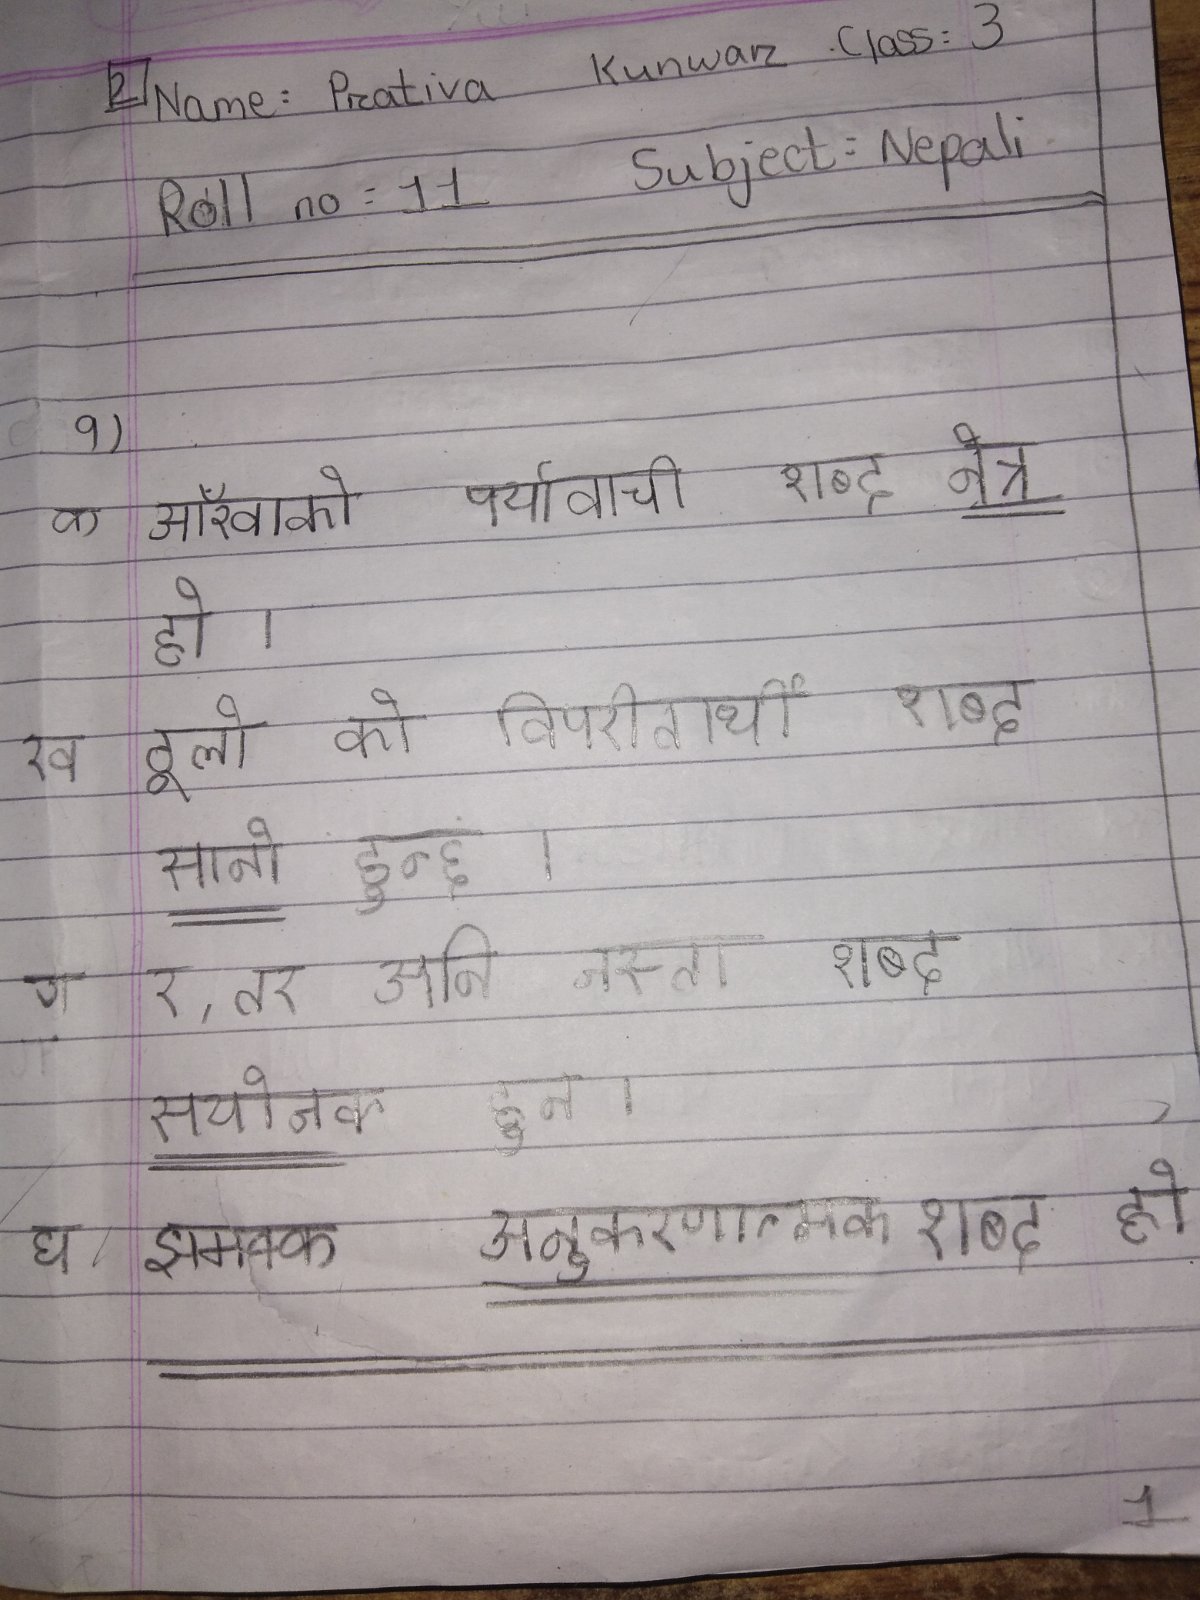 Name: Prativa Kunwar Class: 3
Roll no: 11 Subject: Nepali
१)
क आँखाको पर्यावाची शब्द नेत्र
हो ।
ख ठूलो को विपरीतार्थी शब्द
सानो हुन्छ ।
ग र, तर अनि जस्ता शब्द
सयोजक हुन ।
घ झमक्क अनुकरणात्मक शब्द हो
1